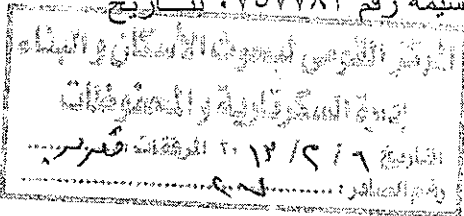 سيمة رقم ٠٧٥٧٧٨١ بتاريخ
المركز القومى لبحوث الأسكان والبناء
إدارة السكرتارية والمحفوظات
التاريخ ٦ / ٢ / ٢٠١٣ المرفقات تقرير
رقم الصادر :